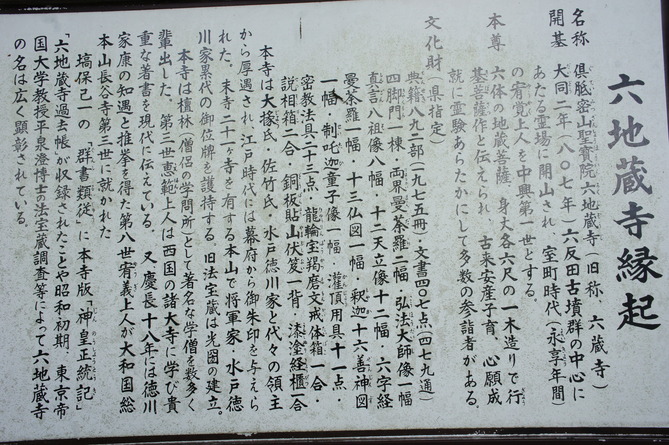 六地蔵寺縁起
名称 倶胝密山聖寶院六地蔵寺(旧称 六蔵寺)
開基 大同二年(八〇七年)六反田古墳群の中心に
あたる霊場に開山され 室町時代(永享年間)
の宥覚上人を中興第一世とする。
本尊 六体の地蔵菩薩 身丈各六尺の一木造りで行
基菩薩作と伝えられ 古来安産子育、心願成
就に霊験あらたかにして多数の参詣者がある。
文化財(県指定)
典籍八九二部(一九七五冊)・文書四〇七点(四七九通)
四脚門一棟・両界曼荼羅二幅・弘法大師像一幅
真言八祖像八幅・十二天立像十二幅・六字経
曼荼羅一幅・十三仏図一幅・釈迦十六善神図
一幅・制吒迦童子像一幅・灌頂用具十一点・
密教法具二十三点・龍輪宝羯磨文戒体箱一合・
説相箱二合・銅板貼山伏笈一背・漆塗経櫃一合
本寺は大掾氏・佐竹氏・水戸徳川家と代々の領主
から厚遇され 江戸時代には幕府から御朱印を与えら
れた。末寺二十ヶ寺を有する本山で将軍家・水戸徳
川家累代の御位牌を護持する。旧法宝蔵は光圀の建立。
本寺は檀林(僧侶の学問所)として著名な学僧を数多く
輩出した。第三世恵範上人は西国の諸大寺に学び貴
重な著書を現代に伝えている。又 慶長十八年には徳川
家康の知遇と推挙を得た第八世宥義上人が大和国総
本山長谷寺第三世に就かれた
塙保己一の「群書類従」に本寺版「神皇正統記」
「六地蔵寺過去帳」が収録されたことや昭和初期 東京帝
国大学教授平泉澄博士の法宝蔵調査等によって六地蔵寺
の名は広く顕彰されている。